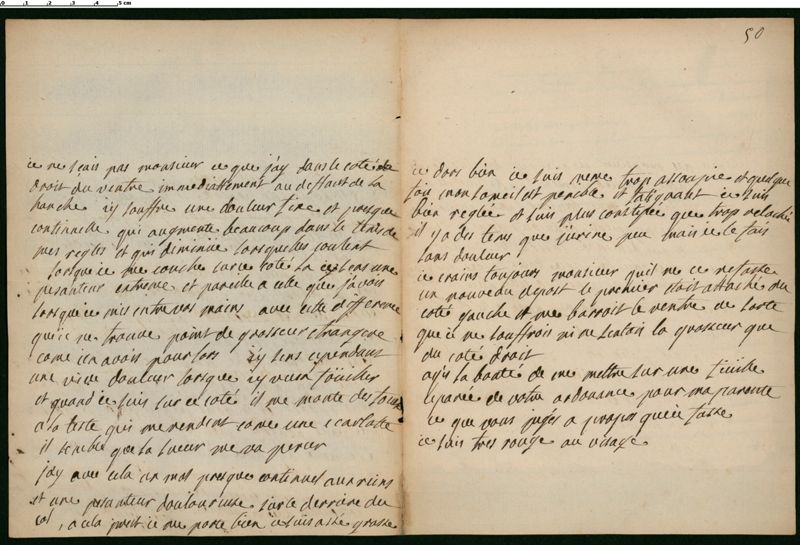 je ne sçais pas monsieur ce que jay dans le coté
droit du ventre immediattement au deffaut de la
hanche jy souffre une douleur fixe et presque
continuelle qui augmente beaucoup dans le tems de
mes regles et qui diminue lorsquelles coulent
lorsque je me couche sur ce coté la je sens une
pesanteur extreme et pareille a celle que javois
lorsque je mis entre vos mains avec cette difference
que je ne trouve point de grosseur etrangere
come jen avois pour lors jy sens cependant
une vive douleur lorsque jy veux toucher
et quand je suis sur ce coté il me monte des feux
a la teste qui me rendent come une ecarlatte
il semble que la sueur me va percer
jay avec cela un mal presque continuel aux reins
et une pesanteur douloureuse sur le derriere du
col, a cela prest je me porte bien je suis assé grasse
50
je dors bien je suis meme trop assoupie et quelque
fois mon someil est penible et fatiguant je suis
bien reglée et suis plus constipée que trop relachée
il y a des tems que jurine peu mais je le fais
sans douleur
je crains toujours monsieur quil ne se refasse
un nouveau depost le premier etoit attaché du
coté gauche et me barroit le ventre de sorte
que je ne souffrois ni ne sentois la grosseur que
du coté droit
ayés la bonté de me mettre sur une feuille
separée de votre ordonance pour ma parente
ce que vous jugés a propos que je fasse
je suis tres rouge au visage